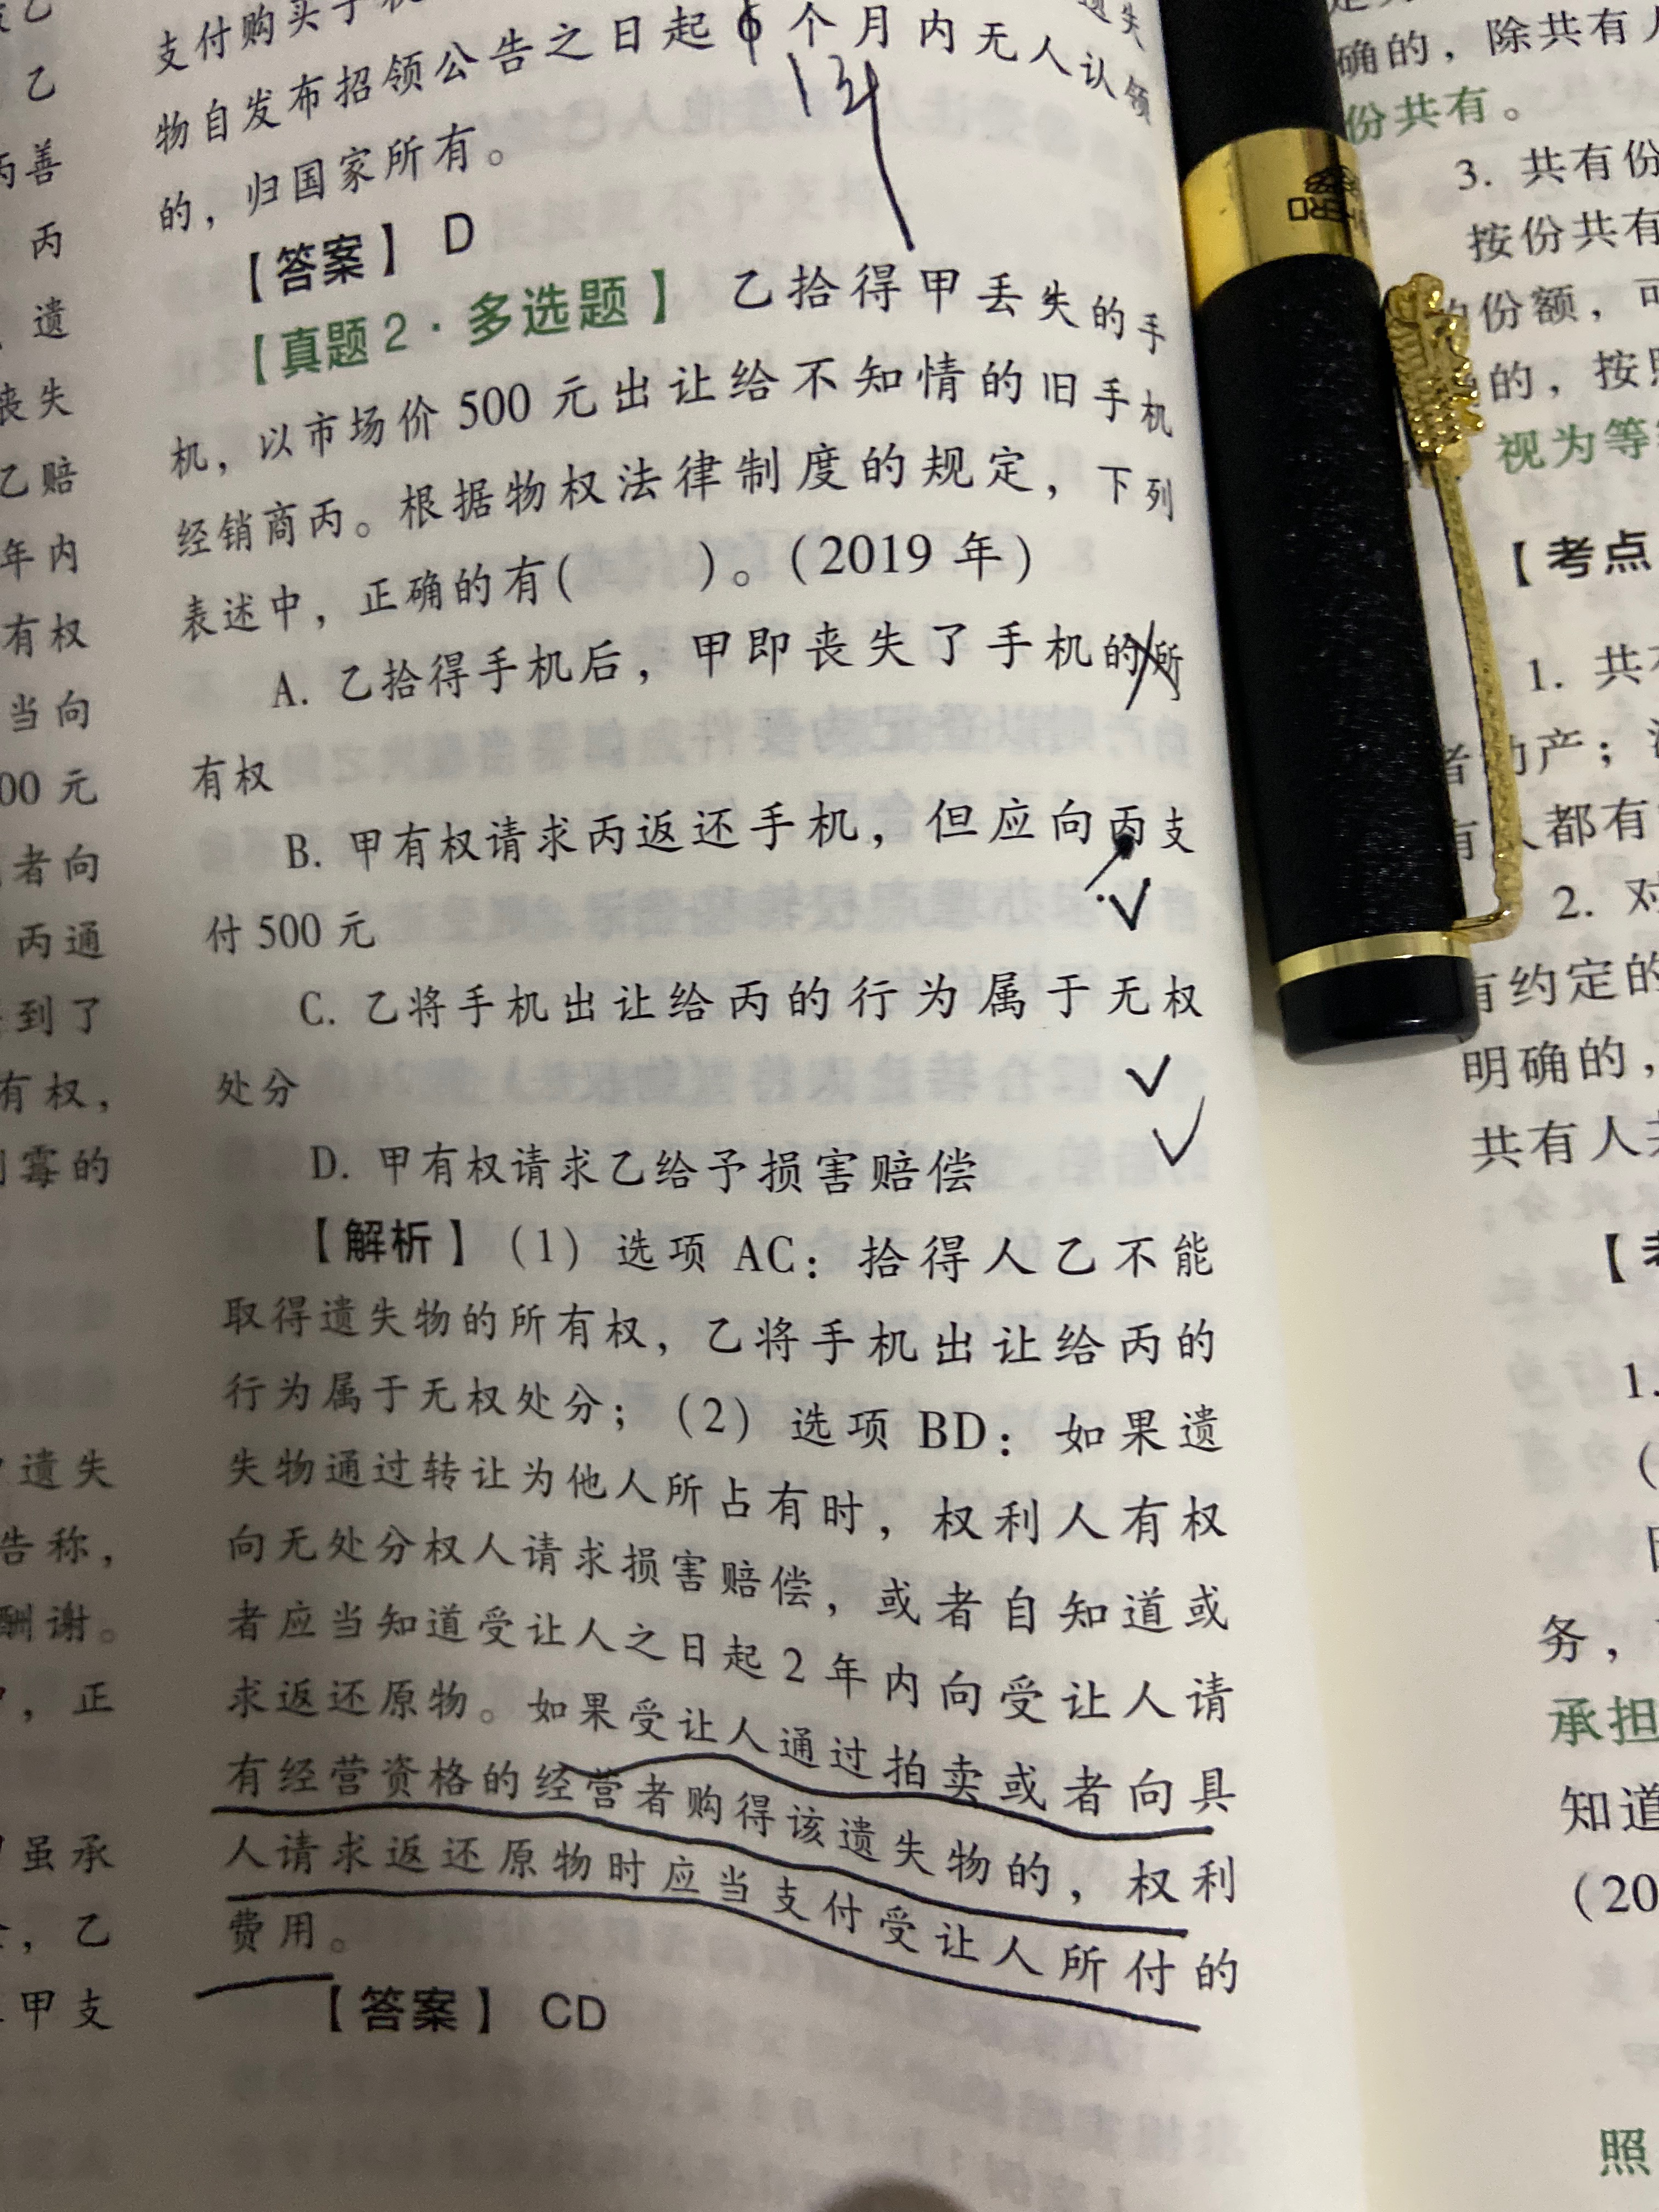 乙
乙
丙善
丙
遗
丧失
乙赔
年内
有权
当向
00 元
者向
丙通
到了
有权，
霉的
遗失
告称，
酬谢。
，正
虽承
，乙
甲支
支付购买手机
物自发布招领公告之日起6个月内无人认领
1年
的，归国家所有。
【答案】 D
【真题2·多选题】 乙拾得甲丢失的手
机，以市场价500元出让给不知情的旧手机
经销商丙。根据物权法律制度的规定，下列
表述中，正确的有(  )。（2019 年）
A. 乙拾得手机后，甲即丧失了手机的所
有权
B. 甲有权请求丙返还手机，但应向丙支
付500元
C. 乙将手机出让给丙的行为属于无权
处分
D. 甲有权请求乙给予损害赔偿
【解析】（1）选项 AC：拾得人乙不能
取得遗失物的所有权，乙将手机出让给丙的
行为属于无权处分；（2）选项 BD：如果遗
失物通过转让为他人所占有时，权利人有权
向无处分权人请求损害赔偿，或者自知道或
者应当知道受让人之日起2年内向受让人请
求返还原物。如果受让人通过拍卖或者向具
有经营资格的经营者购得该遗失物的，权利
人请求返还原物时应当支付受让人所付的
费用。
【答案】 CD
HERO
确的，除共有人
份共有。
3. 共有份
按份共有
份额，可
的，按照
视为等
【考点
1. 共有
产；
人都有
2. 对
有约定的
明确的，
共有人共
【考
1.
（
务，
承担
知道
（20
照